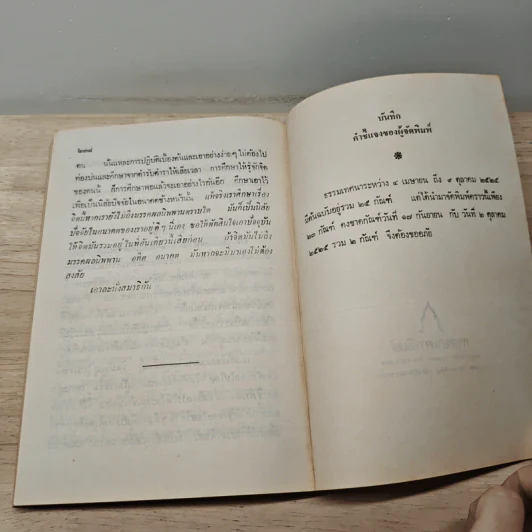 ตน นั่นแหละการปฏิบัติเบื้องต้นและเอาอย่างง่าย ๆ ไม่ต้องไป
ท่องบ่นและศึกษาจากตำรับตำราให้เสียเวลา การศึกษาให้รู้จักจิต
ของตนนี้ ก็การศึกษาพอแล้วจะเอาอย่างไรกันอีก ศึกษาเอาไว้
เพื่อเป็นนิสัยปัจจัยในอนาคตข้างหน้านั้น แท้จริงเราศึกษาเรื่อง
จิตก็หาดรายังไม่ถึงมรรคผลนิพพานตราบใด มันก็เป็นนิสัย
ปัจจัยในอนาคตของเราอยู่ดี ๆ นี่เอง ขอให้ตัดสินใจเอาปัจจุบัน
ให้จิตมันรวมอยู่ในที่อันเดียวนี้เสียก่อน ถ้าจิตมันไม่ถึง
มรรคผลนิพพาน อดีต อนาคต มันหากจะมีมาเองไม่ต้อง
สงสัย
เอาละนั่งสมาธิกัน
บันทึก
คำชี้แจงของผู้จัดพิมพ์
ธรรมเทศนาระหว่าง ๔ เมษายน ถึง ๙ ตุลาคม ๒๕๒๕
มีต้นฉบับอยู่รวม ๒๕ กัณฑ์ แต่ได้นำมาจัดพิมพ์คราวนี้เพียง
๒๓ กัณฑ์ คงขาดกัณฑ์วันที่ ๑๗ กันยายน กับ วันที่ ๒ ตุลาคม
๒๕๒๕ รวม ๒ กัณฑ์ จึงต้องขออภัย